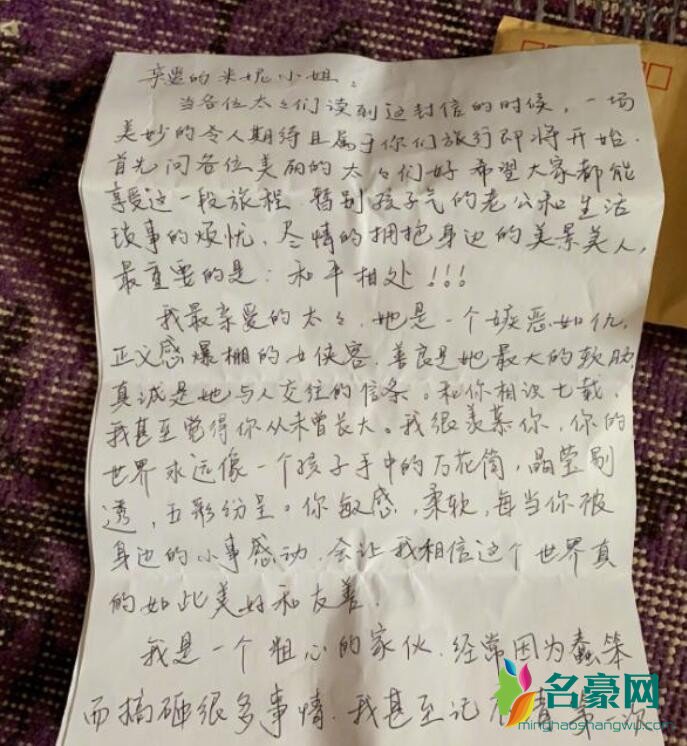 亲爱的米妮小姐。
当各位太太们读到这封信的时候，一场
美妙的令人期待且属于你们旅行即将开始.
首先问各位美丽的太太们好 希望大家都能
享受这一段旅程. 暂别孩子气的老公和生活
琐事的烦忧, 尽情的拥抱身边的美景美人,
最重要的是: 和平相处!!!
我最亲爱的太太, 她是一个嫉恶如仇,
正义感爆棚的女侠客. 善良是她最大的软肋,
真诚是她与人交往的信条。和你相识七载,
我甚至觉得你从未曾长大。我很羡慕你, 你的
世界永远像一个孩子手中的万花筒, 晶莹剔
透, 五彩纷呈。你敏感, 柔软, 每当你被
身边的小事感动, 会让我相信这个世界真
的如此美好和友善!
我是一个粗心的家伙, 经常因为蠢笨
而搞砸很多事情. 我甚至记 第一次
名豪网
minghaoshangwu.com